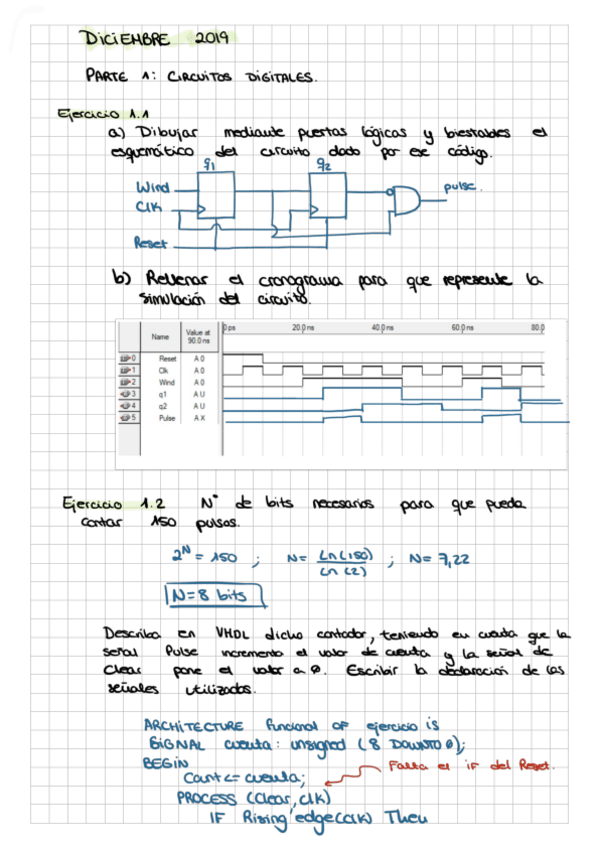 DICIEMBRE 2019
PARTE 1: CIRCUITOS DIGITALES.
Ejercicio 1.1
a) Dibujar mediante puertas lógicas y biestables el
esquemático del circuito dado por ese código.
q1
q2
Wind
pulse.
Clk
Reset
b) Rellenar el cronograma para que represente la
simulación del circuito.
Name
Value at
90.0 ns
0 ps
20.0 ns
40.0 ns
60.0 ns
80.0
0 Reset A 0
1 Clk A 0
2 Wind A 0
3 q1 A U
4 q2 A U
5 Pulse A X
Ejercicio 1.2 Nº de bits necesarios para que pueda
contar 150 pulsos.
2^N = 150 ; N = Ln(150) / Ln(2) ; N = 7,22
N=8 bits
Describa en VHDL dicho contador, teniendo en cuenta que la
señal Pulse incrementa el valor de cuenta y la señal de
Clear pone el valor a 0. Escribir la declaración de las
señales utilizadas.
ARCHITECTURE funcional OF ejercicio is
SIGNAL cuenta : unsigned (8 DOWNTO 0);
BEGIN
Falta el IF del Reset.
Cont <= cuenta;
PROCESS (Clear, clk)
IF Rising edge(clk) Then